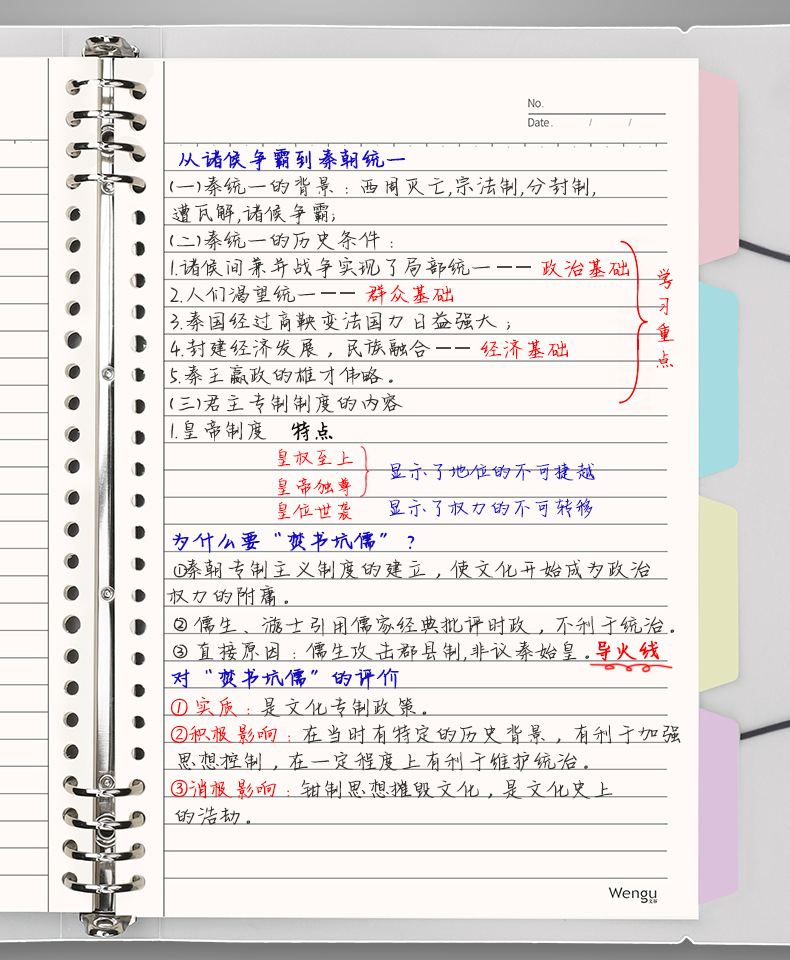 No.
Date. / /
从诸侯争霸到秦朝统一
(一)秦统一的背景：西周灭亡,宗法制,分封制,
遭瓦解,诸侯争霸;
(二)秦统一的历史条件：
1.诸侯间兼并战争实现了局部统一—— 政治基础
2.人们渴望统一—— 群众基础
3.秦国经过商鞅变法国力日益强大；
4.封建经济发展，民族融合—— 经济基础
5.秦王嬴政的雄才伟略。
学习重点
(三)君主专制制度的内容
1.皇帝制度 特点
皇权至上
皇帝独尊
显示了地位的不可捷越
皇位世袭 显示了权力的不可转移
为什么要“焚书坑儒”？
①秦朝专制主义制度的建立，使文化开始成为政治
权力的附庸。
②儒生、游士引用儒家经典批评时政，不利于统治。
③直接原因：儒生攻击郡县制,非议秦始皇。导火线
对“焚书坑儒”的评价
①实质：是文化专制政策。
②积极影响：在当时有特定的历史背景，有利于加强
思想控制，在一定程度上有利于维护统治。
③消极影响：钳制思想摧毁文化，是文化史上
的浩劫。
Wengu
文谷